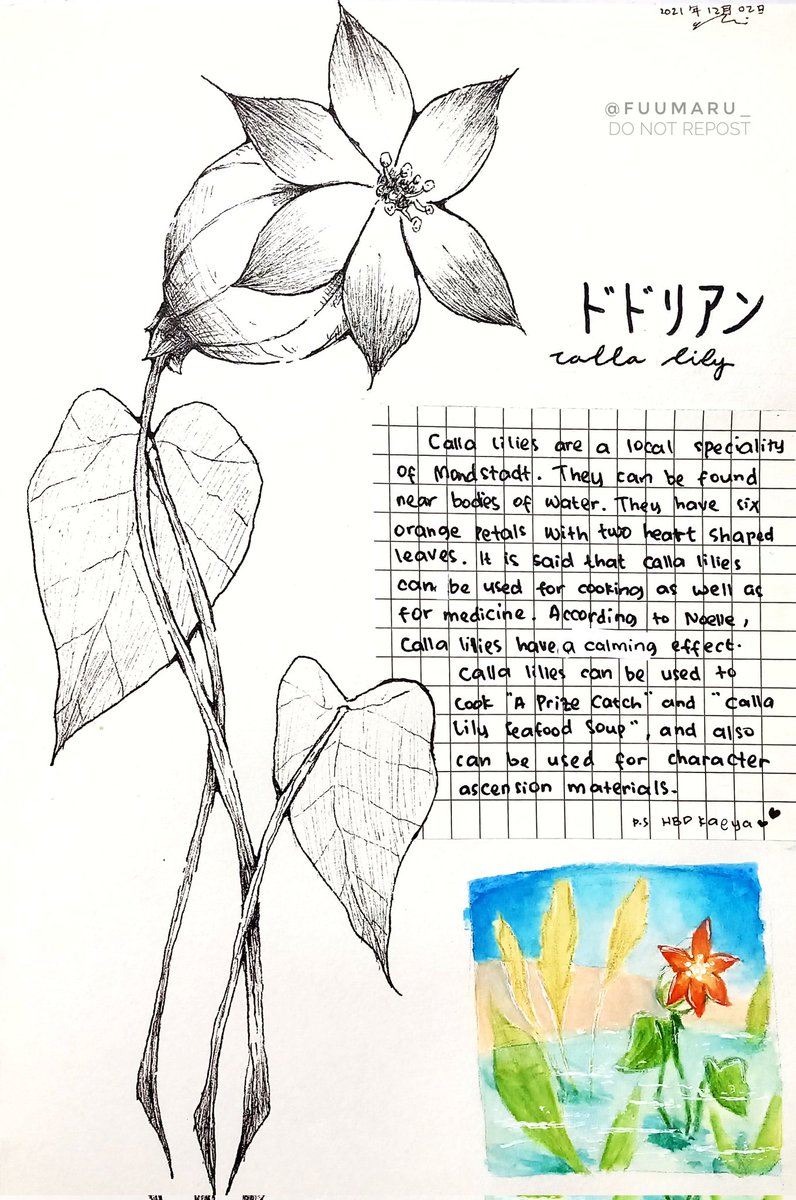 2021年12月02日
@FUUMARU_
DO NOT REPOST
ドドリアン
calla lily
Calla lilies are a local speciality
of Mondstadt. They can be found
near bodies of water. They have six
orange petals with two heart shaped
leaves. It is said that calla lilies
can be used for cooking as well as
for medicine. According to Noelle,
Calla lilies have a calming effect.
Calla lilies can be used to
cook "A Prize Catch" and "Calla
Lily Seafood Soup", and also
can be used for character
ascension materials.
P.S HBD Kaeya